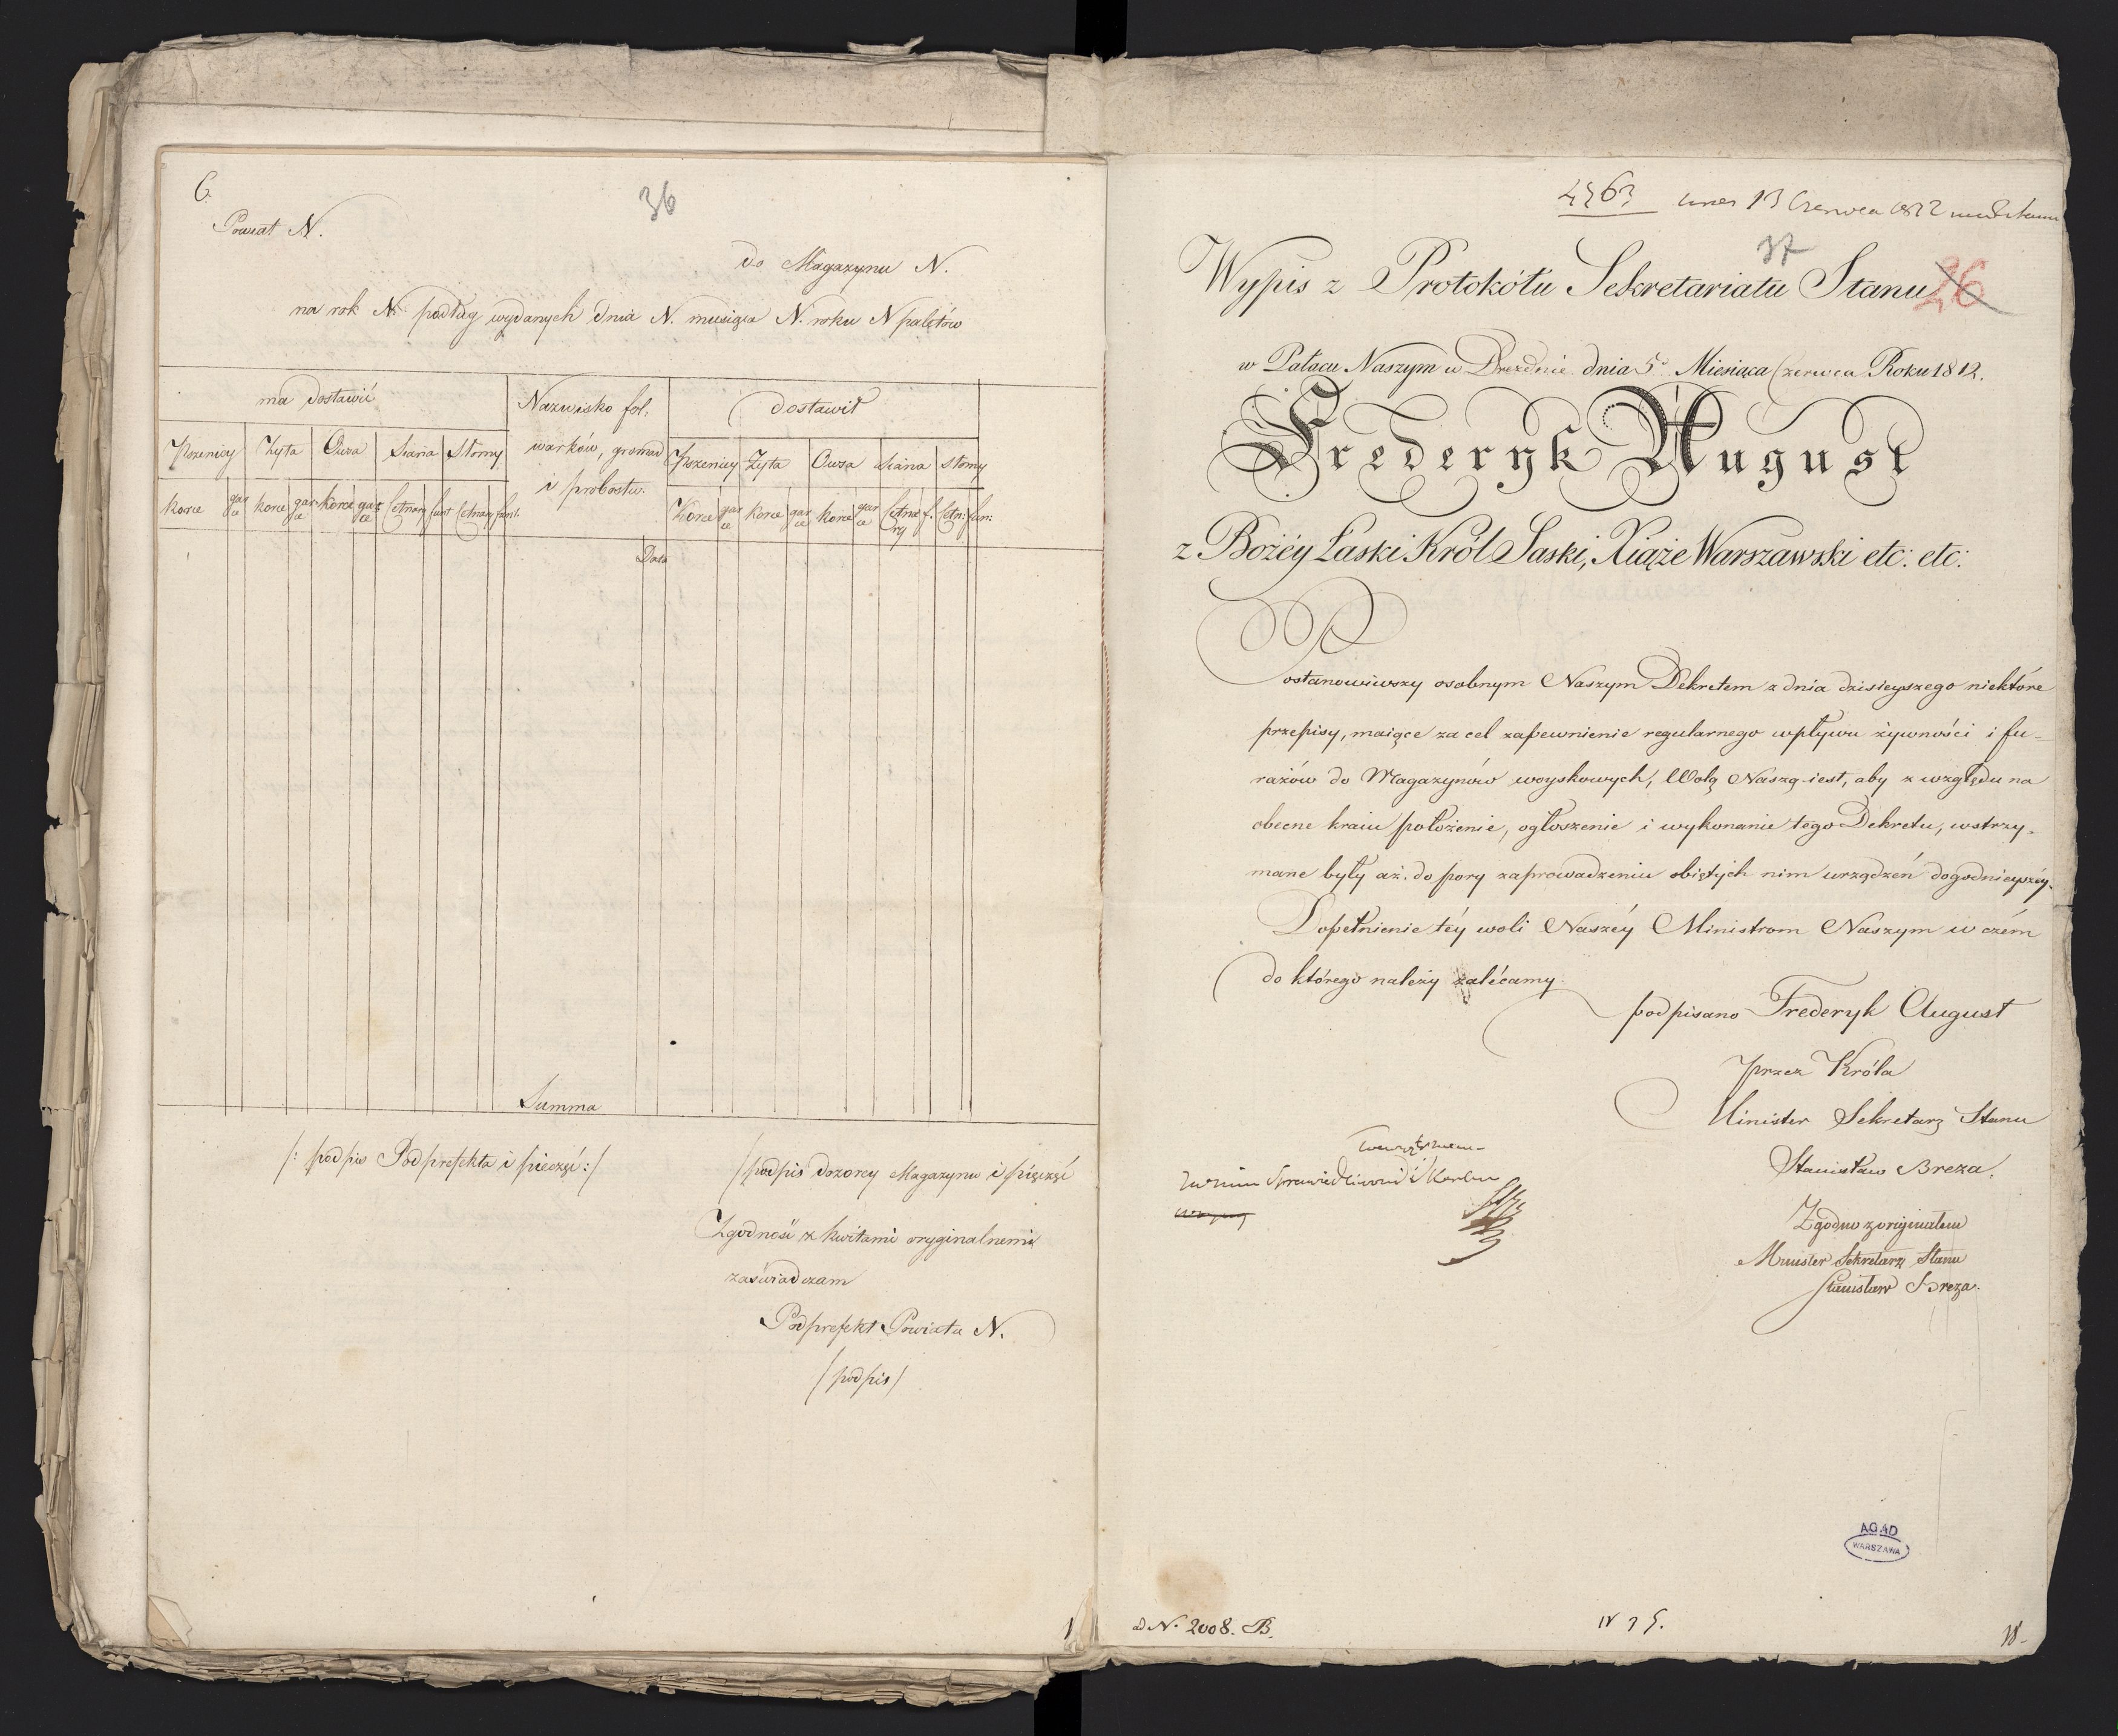 6.
36
Powiat N.
do Magazynu N.
na rok N. podług wydanych dnia N. miesiąca N. roku N paletów
ma dostawić
Nazwisko fol-
warków, gromad
i probostw.
dostawił
Pszenicy Żyta Owsa Siana Słomy
Pszenicy Żyta Owsa Siana Słomy
korce gar ce korce gar ce korce gar ce Cetnary funt Cetnary funt.
Korce gar ce korce gar ce korce gar ce Cetna ry f. Cetn: fun:
Data
Summa
/: podpis Podprefekta i pieczęć :/
/podpis dozorcy Magazynu i pieczęć
Zgodność z kwitami oryginalnemi
zaświadczam
Podprefekt Powiatu N.
/podpis/
13 Czerwca 1812
37
Wypis z Protokółu Sekretariatu Stanu
26
w Pałacu Naszym w Dreznie dnia 5. Miesiąca Czerwca Roku 1812.
Frederyk August
z Bożéy Łaski Król Saski, Xiąże Warszawski etc: etc:
Postanowiwszy osobnym Naszym Dekretem z dnia dzisieyszego niektóre
przepisy, maiące za cel zapewnienie regularnego wpływu żywności i fu-
rażów do Magazynów woyskowych, Wolą Naszą iest, aby z względu na
obecne kraiu położenie, ogłoszenie i wykonanie tego Dekretu, wstrzy-
mane były aż do pory zaprowadzeniu obiętych nim urządzeń dogodnieyszéy.
Dopełnienie téy woli Naszéy Ministrom Naszym w czém
do którego należy zalécamy.
podpisano Frederyk August
przez Króla
Minister Sekretarz Stanu
Stanisław Breza.
Sprawiedliwości i Skarbu
Zgodno z oryginałem
Minister Sekretarz Stanu
Stanisław Breza.
AGAD
WARSZAWA
N. 2008. B.
18.